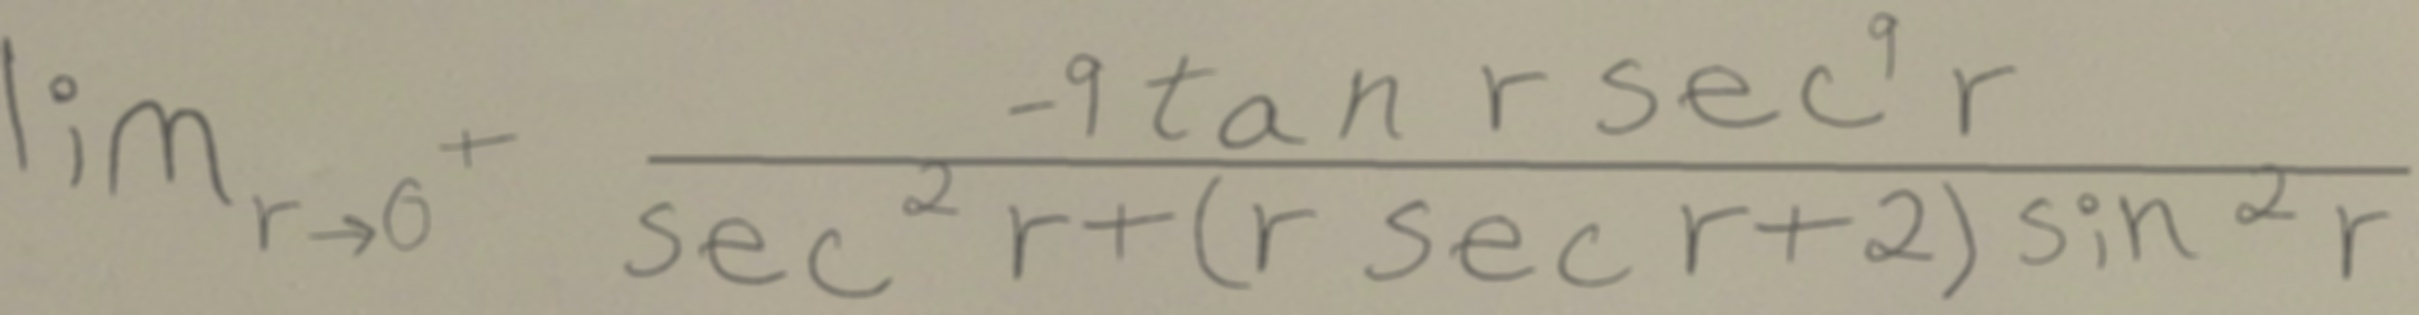 \lim_{r \to 0^+} \frac{-9 \tan r \sec^9 r}{\sec^2 r + (r \sec r + 2) \sin^2 r}